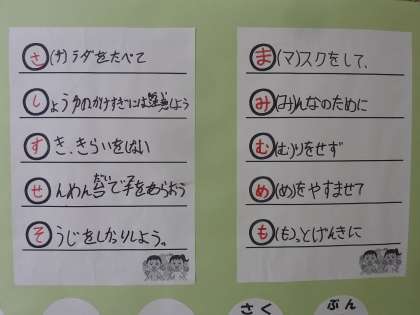 さ(サ)ラダをたべて
しょうゆのかけすぎには注意しよう
すき、きらいをしない
せんめん台で手をあらおう
そうじをしっかりしよう。
ま(マ)スクをして、
み(み)んなのために
む(む)りをせず
め(め)をやすませて
も(も)っとげんきに
さく ぶん